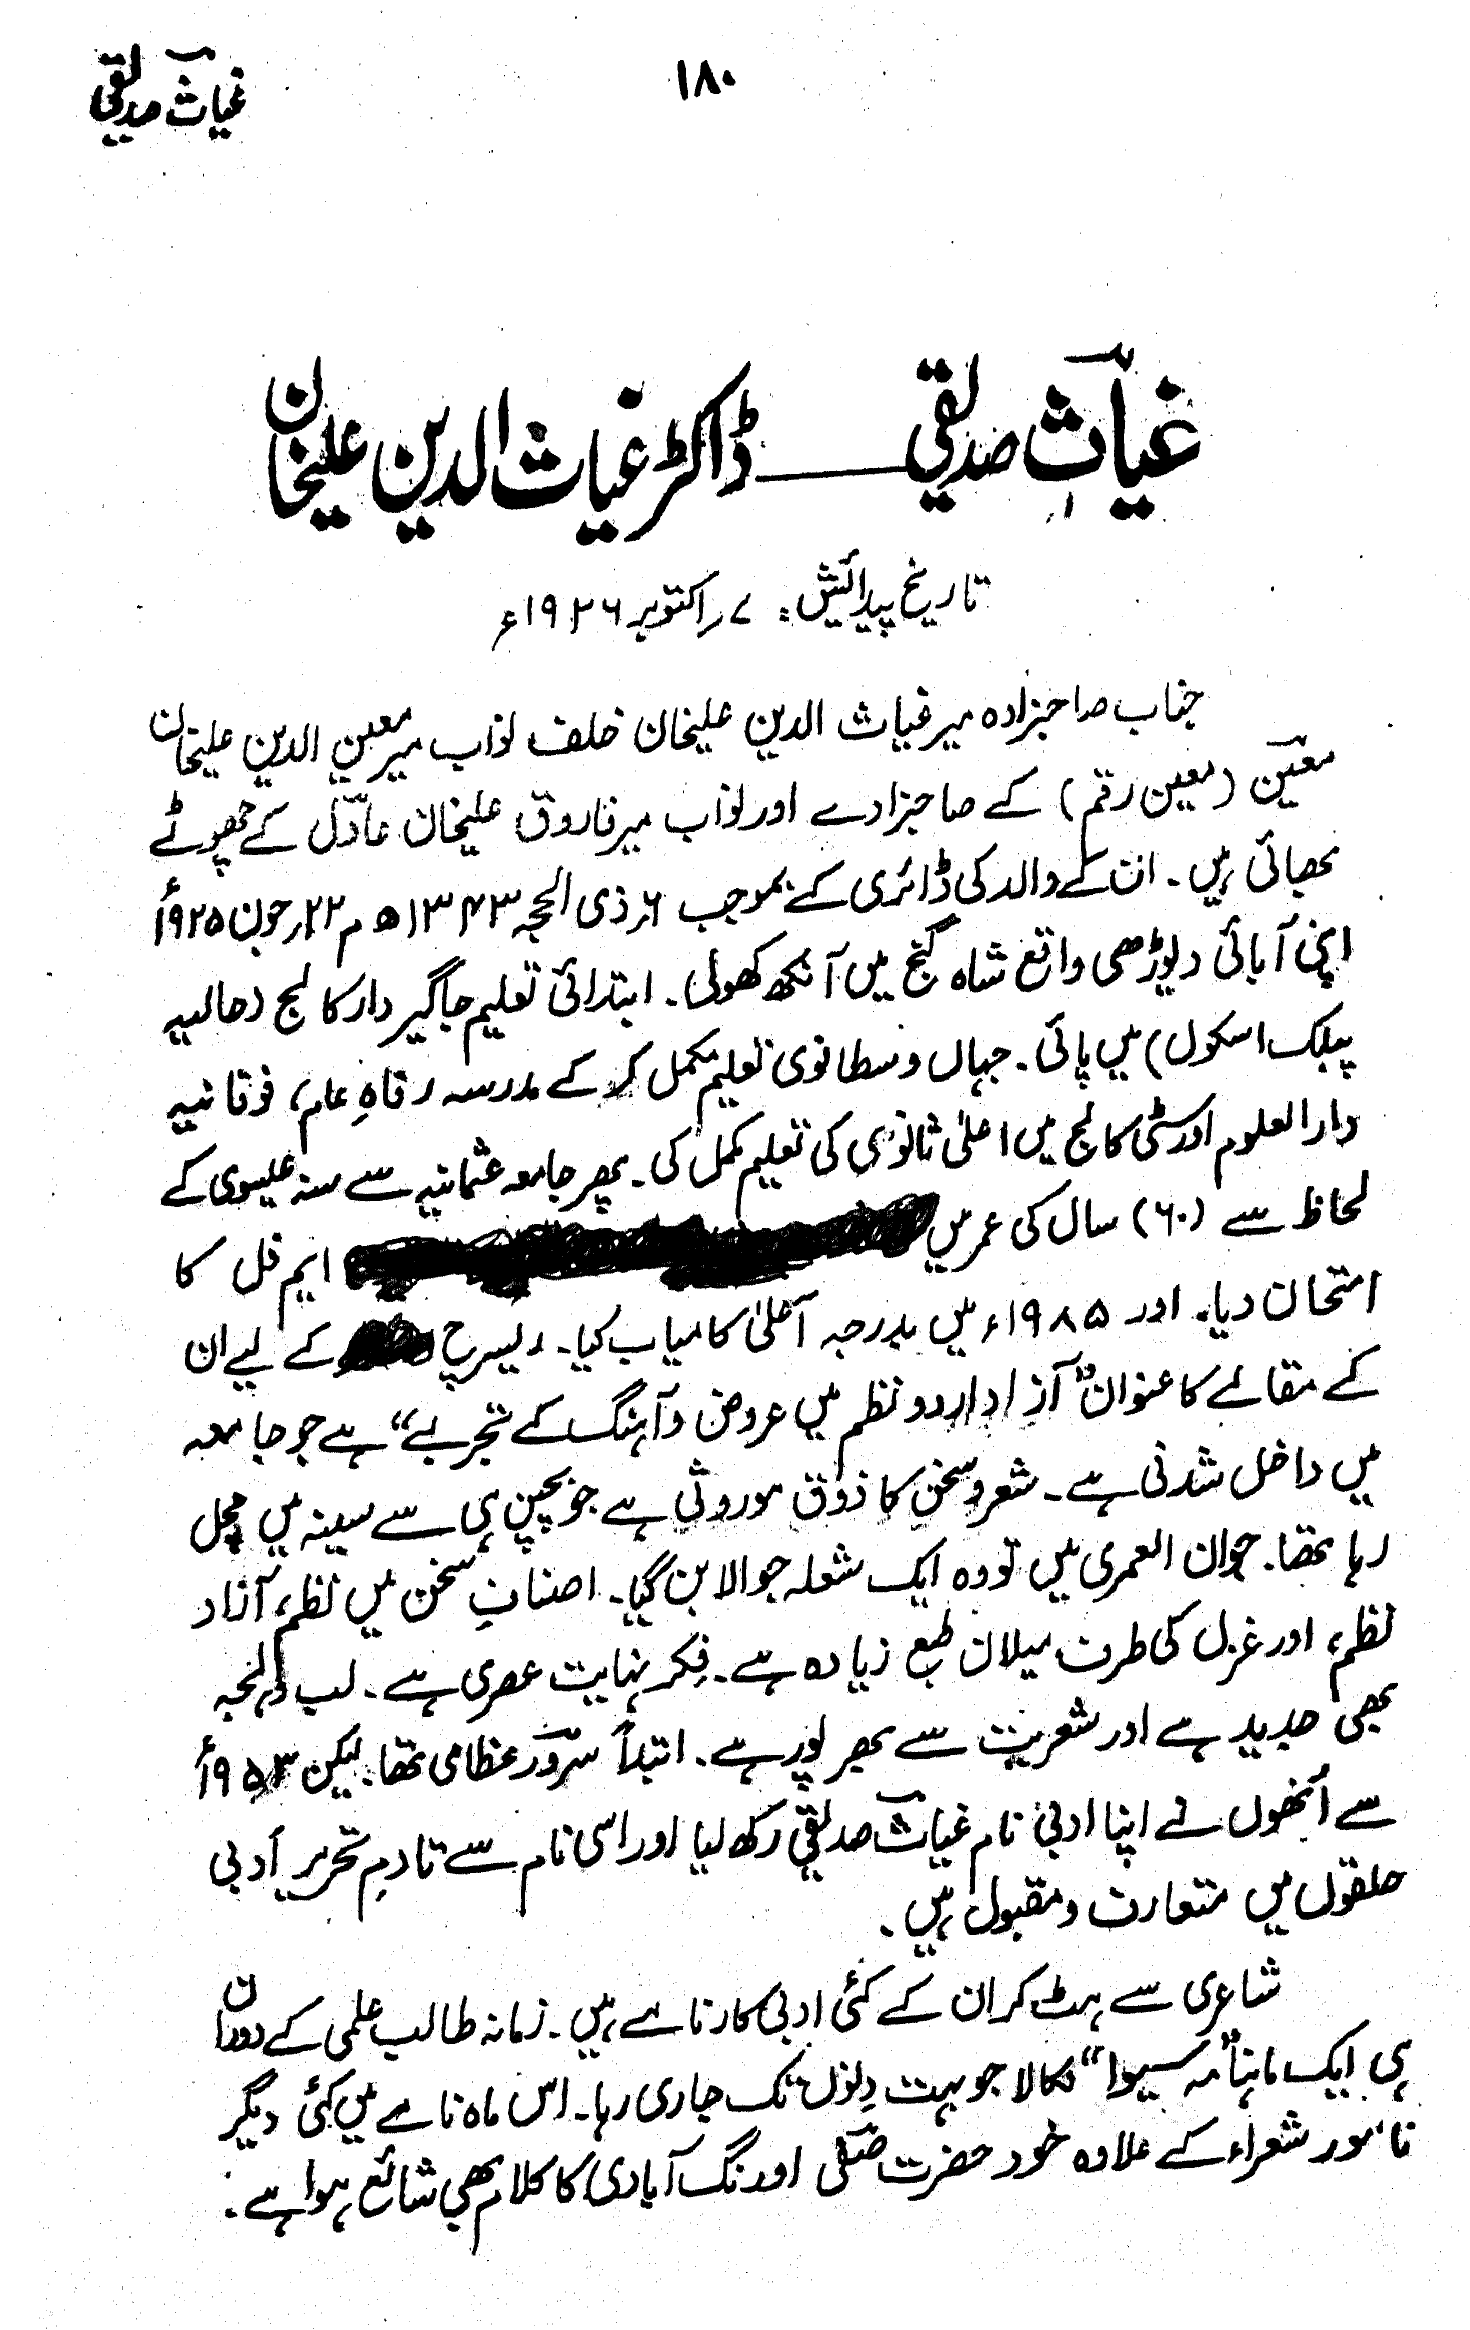 ۱۸۰
غیاث صدیقی
غیاث صدیقی ــــــ ڈاکٹر غیاث الدین علیخان
تاریخ پیدائش: ۷؍اکتوبر ۱۹۲۶ء
جناب صاحبزادہ میر غیاث الدین علیخان خلف نواب میر معین الدین علیخان
معین (معین رقم) کے صاحبزادے اور نواب میر فاروق علیخان عادل کے چھوٹے
بھائی ہیں۔ ان کے والد کی ڈائری کے بموجب ۶؍ذی الحجہ ۱۳۴۳ھ م ۲۲؍جون ۱۹۲۵ء
اپنی آبائی دیوڑھی واقع شاہ گنج میں آنکھ کھولی۔ ابتدائی تعلیم جاگیردار کالج (حالیہ
پبلک اسکول) میں پائی۔ جہاں وسطانوی تعلیم مکمل کر کے مدرسہ رفاہِ عام، فوقانیہ
دارالعلوم اور سٹی کالج میں اعلیٰ ثانوی کی تعلیم مکمل کی۔ پھر جامعہ عثمانیہ سے سنہ عیسوی کے
لحاظ سے (۶۰) سال کی عمر میں ایم فل کا
امتحان دیا۔ اور ۱۹۸۵ء میں بدرجہ اعلیٰ کامیاب کیا۔ ریسرچ کے لیے ان
کے مقالے کا عنوان "آزاد اردو نظم میں عروض و آہنگ کے تجربے" ہے جو جامعہ
میں داخل شدنی ہے۔ شعر و سخن کا ذوق موروثی ہے جو بچپن ہی سے سینہ میں مچل
رہا تھا۔ جوان العمری میں تو وہ ایک شعلہ جوالا بن گیا۔ اصنافِ سخن میں نظم، آزاد
نظم، اور غزل کی طرف میلان طبع زیادہ ہے۔ فکر نہایت عصری ہے۔ لب و لہجہ
بھی جدید ہے اور شعریت سے بھرپور ہے۔ ابتداً سرور عظامی تھا۔ لیکن ۱۹۵۳ء
سے اُنھوں نے اپنا ادبی نام غیاث صدیقی رکھ لیا اور اسی نام سے تادمِ تحریر ادبی
حلقوں میں متعارف و مقبول ہیں۔
شاعری سے ہٹ کر ان کے کئی ادبی کارنامے ہیں۔ زمانہ طالب علمی کے دوران
ہی ایک ماہنامہ "سیوا" نکالا جو بہت دِنوں تک جاری رہا۔ اس ماہ نامے میں کئی دیگر
نامور شعراء کے علاوہ خود حضرت صفی اورنگ آبادی کا کلام بھی شائع ہوا ہے۔